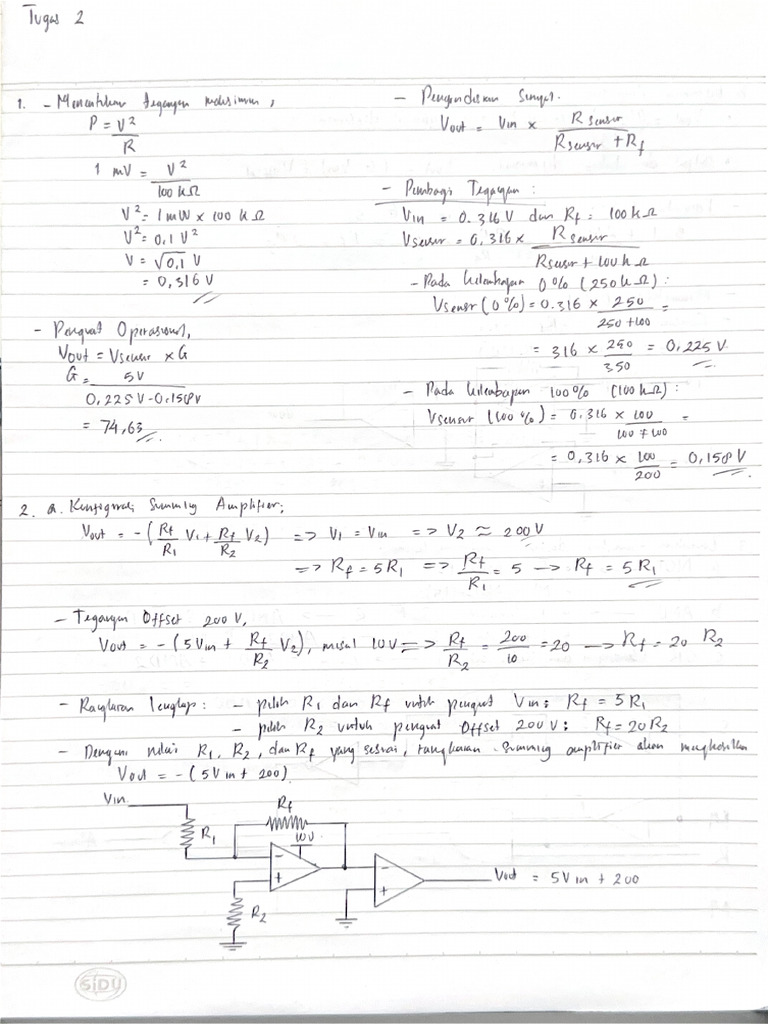 Tugas 2
1. - Menentukan tegangan maksimum,
P = V²/R
1 mV = V²/100 kΩ
V² = 1mW × 100 kΩ
V² = 0,1 V²
V = √0,1 V
= 0,316 V
- Penguat Operasional,
Vout = Vsensor × G
G = 5V/0,225V-0,158V
= 74,63
- Pengondisian Sinyal.
Vout = Vin × Rsensor/Rsensor + Rf
- Pembagi Tegangan :
Vin = 0.316 V dan Rf = 100kΩ
Vsensor = 0,316 × Rsensor/Rsensor + 100kΩ
- Pada kelembapan 0% (250kΩ) :
Vsensor (0%) = 0.316 × 250/250+100 =
= 316 × 250/350 = 0,225 V
- Pada kelembapan 100% (100kΩ) :
Vsensor (100%) = 0.316 × 100/100+100 =
= 0,316 × 100/200 = 0,158 V
2. a. Konfigurasi Summing Amplifier,
Vout = -(Rf/R1 V1 + Rf/R2 V2) => V1 = Vin => V2 ≈ 200V
=> Rf = 5R1 => Rf/R1 = 5 → Rf = 5R1
- Tegangan Offset 200 V,
Vout = -(5Vin + Rf/R2 V2), misal 10V => Rf/R2 = 200/10 = 20 → Rf = 20 R2
- Rangkaian lengkap : - pilih R1 dan Rf untuk penguat Vin : Rf = 5R1
- pilih R2 untuk penguat Offset 200V : Rf = 20R2
- Dengan nilai R1, R2, dan Rf yang sesuai, rangkaian summing amplifier akan menghasilkan
Vout = -(5Vin + 200)
Vin
Rf
R1
10V
-
+
-
+
Vout = 5Vin + 200
R2
SIDU